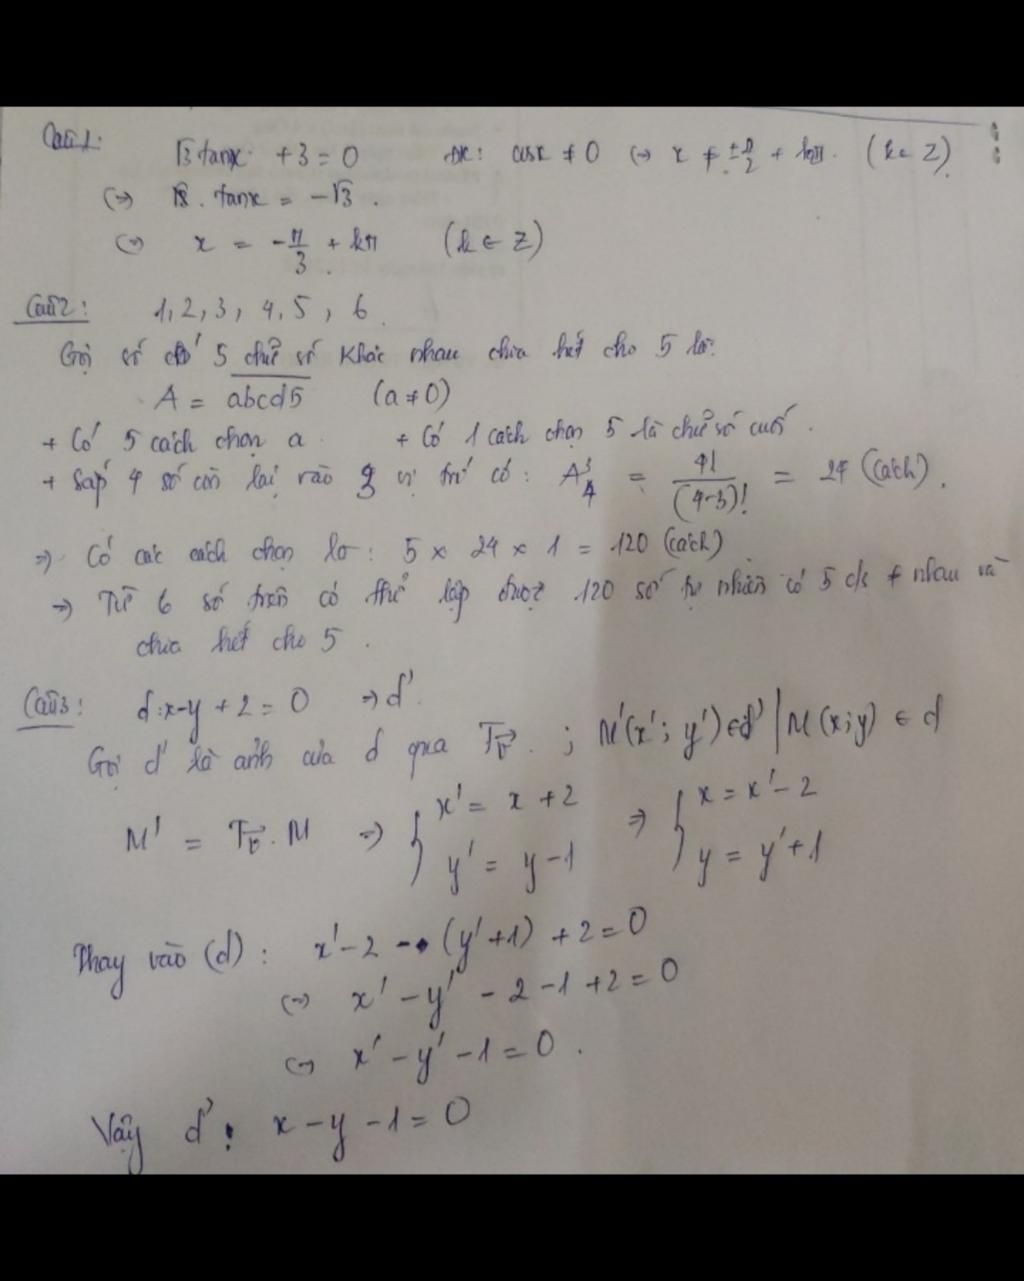 Câu 1:
√3 tanx + 3 = 0 ĐK: cosx ≠ 0 (=) x ≠ ±π/2 + kπ. (k ∈ Z)
(=) tanx = -√3.
(=) x = -π/3 + kπ (k ∈ Z)
Câu 2: 1, 2, 3, 4, 5, 6
Gọi số có 5 chữ số khác nhau chia hết cho 5 là:
A = abcd5 (a ≠ 0)
+ Có 5 cách chọn a. + Có 1 cách chọn 5 là chữ số cuối.
+ Sắp 4 số còn lại vào 3 vị trí có: A³₄ = 4!/(4-3)! = 24 (cách).
=> Có các cách chọn là: 5 × 24 × 1 = 120 (cách)
=> Từ 6 số trên có thể lập được 120 số tự nhiên có 5 c/s ≠ nhau và
chia hết cho 5.
Câu 3: d: x-y+2=0 => d'.
Gọi d' là ảnh của d qua Tv. ; M'(x'; y') ∈ d' | M(x;y) ∈ d
M' = Tv . M => { x' = x + 2 => { x = x' - 2
y' = y - 1 y = y' + 1
Thay vào (d): x' - 2 - (y' + 1) + 2 = 0
(=) x' - y' - 2 - 1 + 2 = 0
(=) x' - y' - 1 = 0.
Vậy d': x - y - 1 = 0